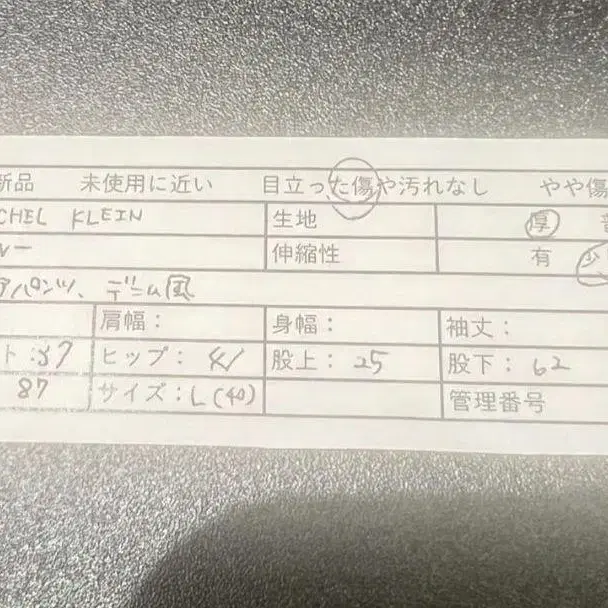 新品 未使用に近い 目立った傷や汚れなし やや傷
CHEL KLEIN 生地 厚
伸縮性 有 少
パンツ、デニム風
肩幅： 身幅： 袖丈：
ト：37 ヒップ： 股上：25 股下：62
87 サイズ：L(40) 管理番号